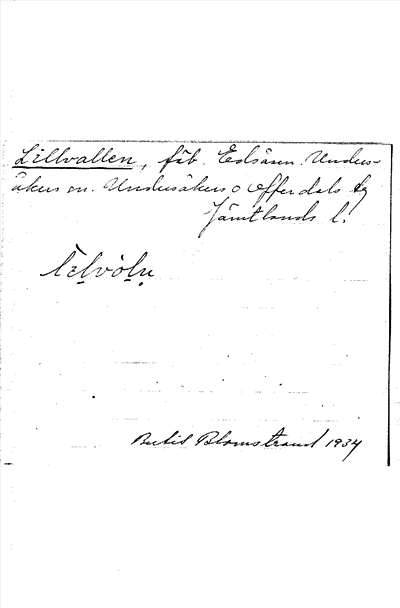 Lillvallen, fäb. Edsåsen. Unders-
åkers sn. Undersåkers o Offerdals tg
Jämtlands l.
Bertil Blomstrand 1934